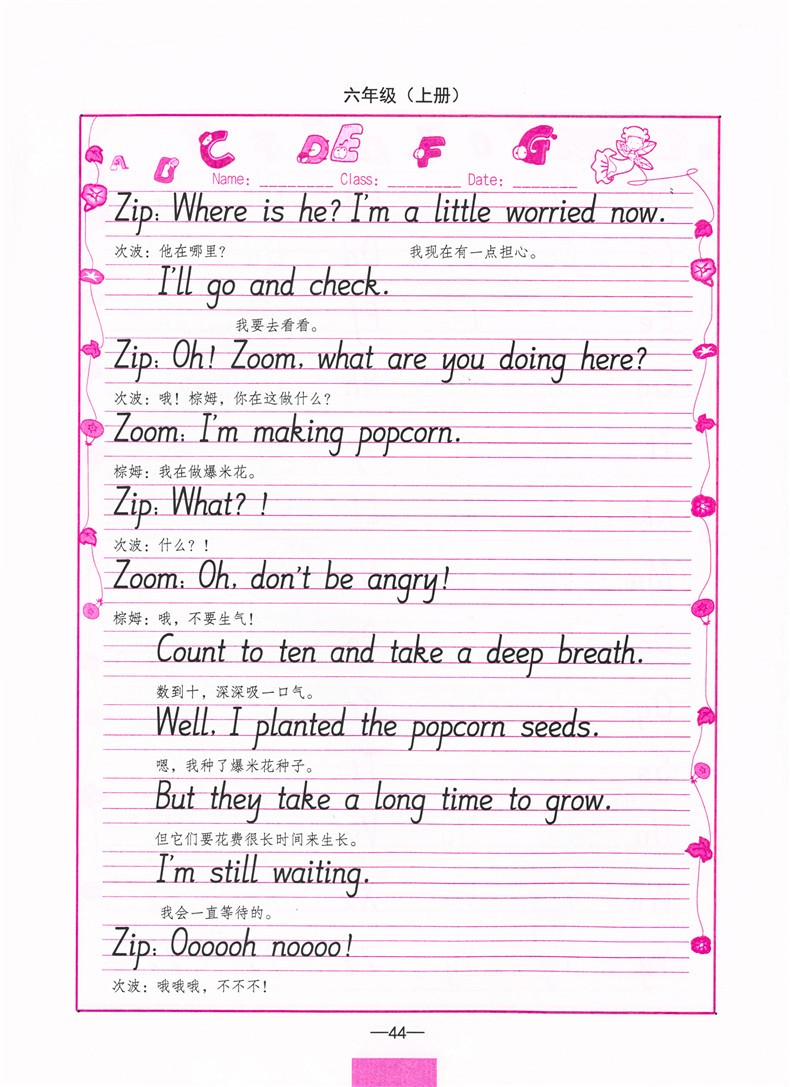 六年级（上册）
A B C D E F G
Name: ________ Class: ________ Date: _______
Zip: Where is he? I'm a little worried now.
次波：他在哪里？ 我现在有一点担心。
I'll go and check.
我要去看看。
Zip: Oh! Zoom, what are you doing here?
次波：哦！棕姆，你在这做什么？
Zoom: I'm making popcorn.
棕姆：我在做爆米花。
Zip: What? !
次波：什么？！
Zoom: Oh, don't be angry!
棕姆：哦，不要生气！
Count to ten and take a deep breath.
数到十，深深吸一口气。
Well, I planted the popcorn seeds.
嗯，我种了爆米花种子。
But they take a long time to grow.
但它们要花费很长时间来生长。
I'm still waiting.
我会一直等待的。
Zip: Oooooh noooo!
次波：哦哦哦，不不不！
—44—